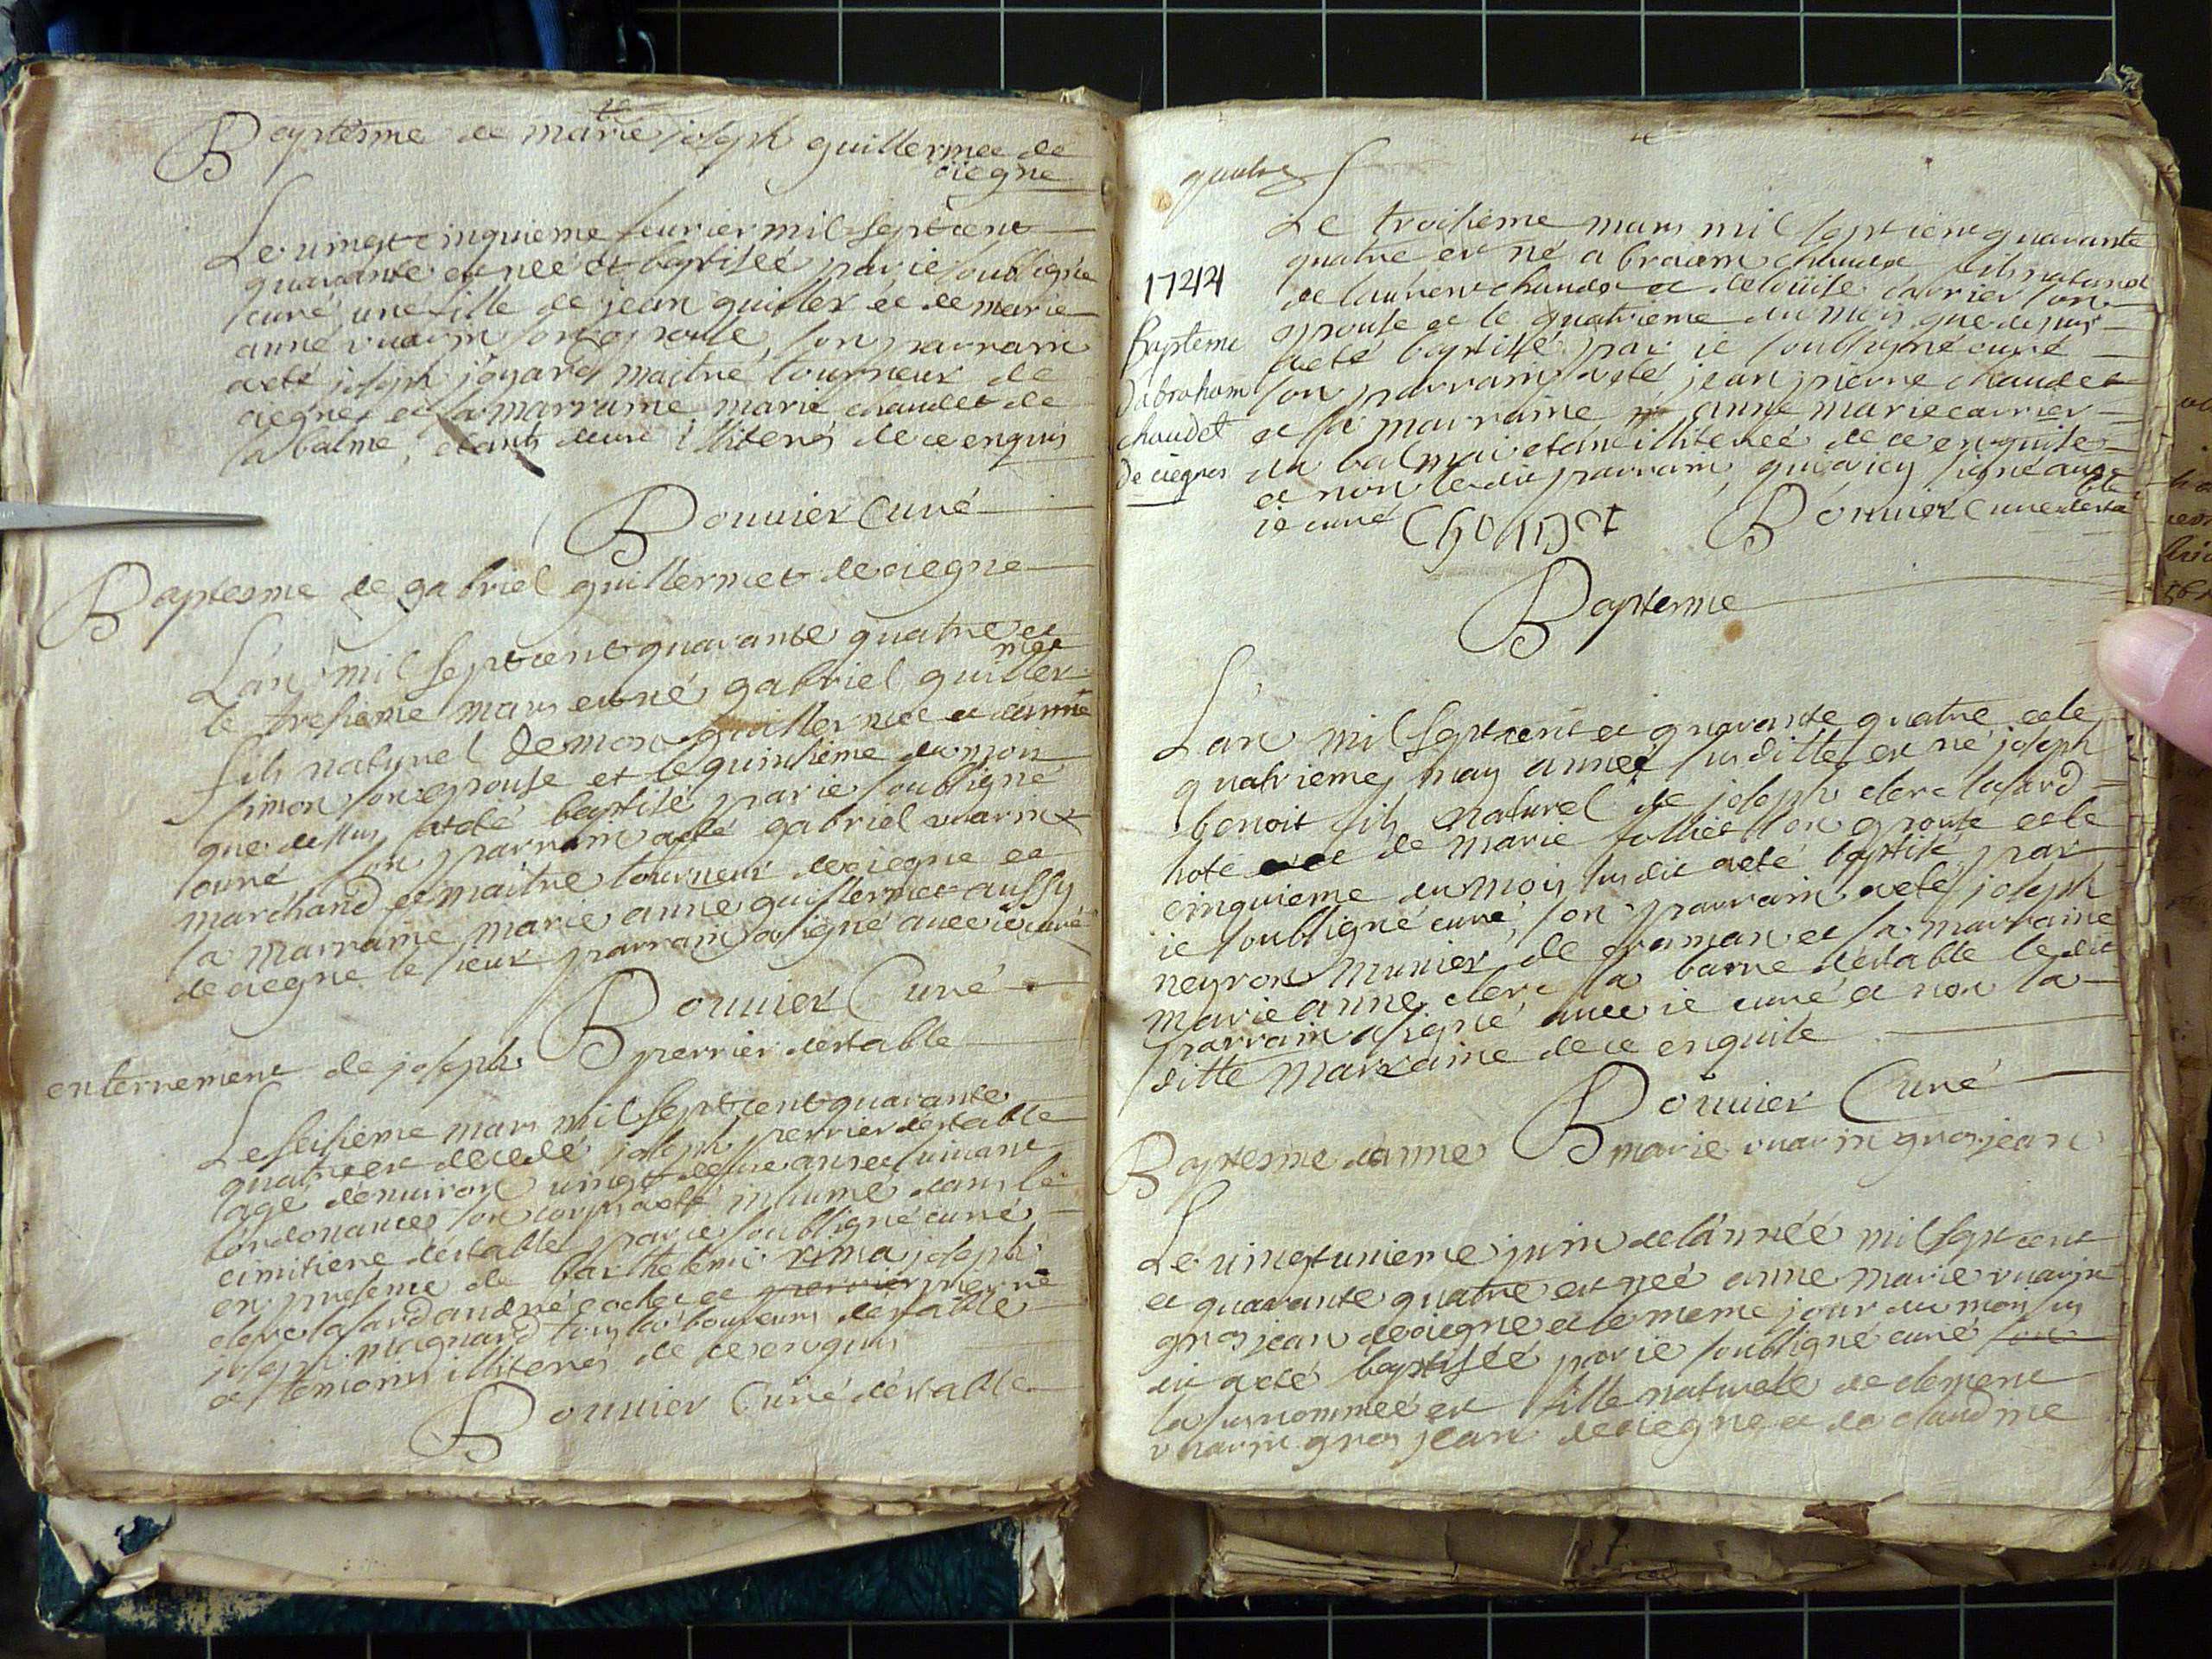 Baptesme de marie joseph guillermee de
ciegne
Le vingtcinquieme feurier mil septcent
quarante est née et baptisée par ie soubsigné
curé une fille de jean guiller et de marie
anne vuarin son epouse, son parrain
aeté joseph joyard maitre tourneur de
ciegne, et sa marraine marie chaudet de
la balme, etants deux illiterés de ce enquis
Bouuier Curé
Baptesme de gabriel guillermet de ciegne
L'an mil septcent quarante quatre et
le tresieme mars est né gabriel guiller
met
fils naturel de mon guillermet et de anne
simon son epouse et le quinsieme du mois
que dessus at eté baptisé par ie soubsigné
curé son parrain aeté gabriel vuarin
marchand et maitre tourneur de ciegne et
la marraine marie anne guillermet aussy
de ciegne le sieur parrain a signé auec ie curé
Bouuier Curé
enterrement de joseph perrier destable
Le seisieme mars mil septcent quarante
quatre est decedé joseph perrier destable
agé denuiron vingt deux années suiuant
lordonance son corps aeté inhumé dans le
cimitiere destable par ie soubsigné curé
en presence de barthelemi rima joseph
clerc lasard andré cochet et perrier pierre
joseph magnard tous laboureurs destable
et temoins illiterés de ce enquis
Bouuier Curé destable
quatre
Le troisieme mars mil septcent quarante
quatre est né abraam chaudet fils naturel
de laurent chaudet et de louise carrier son
epouse et le quatrieme du mois que dessus
aeté baptisé par ie soubsigné curé
son parrain aeté jean pierre chaudet
et sa marraine anne marie carrier
du balmai etant illiterée de ce enquise
et non ledit parrain, qui a icy signé auec
ie curé Chaudet Bouuier Curé desta
ble
1744
Bapteme
d'abraham
chaudet
de ciegnes
Baptesme
L'an mil septcent et quarante quatre et le
quatrieme may année susditte est né joseph
benoit fils naturel de joseph clerc lasard
hote et de marie folliet son epouse et le
cinquieme du mois susdit aeté baptisé par
ie soubsigné curé, son parrain aeté joseph
neyron munier de graman et sa marraine
marie anne clerc la barne destable le dit
parrain a signé auec ie curé et non la
ditte marraine de ce enquise
Bouuier Curé
Baptesme danne marie vuarin gros jean
Le vingtunieme juin de l'année mil septcent
et quarante quatre est née anne marie vuarin
gros jean de ciegne et le meme jour du mois sus
dit aeté baptisée par ie soubsigné curé
la susnommée est fille naturele de clement
vuarin gros jean de ciegne et de claudine